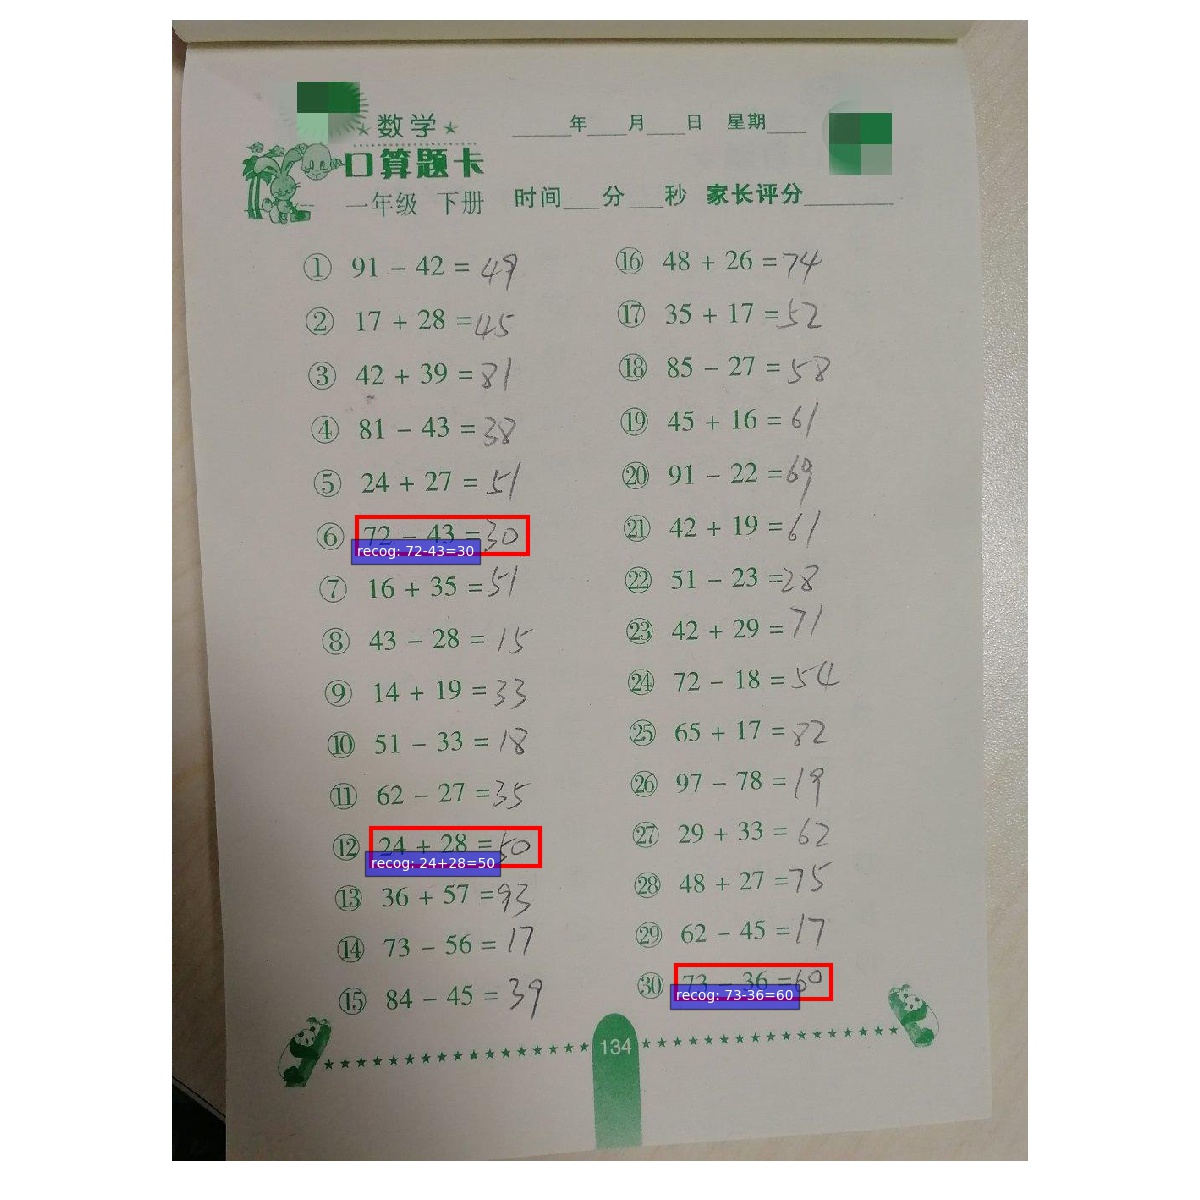 数学
年 月 日 星期
口算题卡
一年级 下册 时间 分 秒 家长评分
① 91 - 42 = 49
② 17 + 28 = 45
③ 42 + 39 = 81
④ 81 - 43 = 38
⑤ 24 + 27 = 51
⑥ 72 - 43 = 30
recog: 72-43=30
⑦ 16 + 35 = 51
⑧ 43 - 28 = 15
⑨ 14 + 19 = 33
⑩ 51 - 33 = 18
⑪ 62 - 27 = 35
⑫ 24 + 28 = 50
recog: 24+28=50
⑬ 36 + 57 = 93
⑭ 73 - 56 = 17
⑮ 84 - 45 = 39
⑯ 48 + 26 = 74
⑰ 35 + 17 = 52
⑱ 85 - 27 = 58
⑲ 45 + 16 = 61
⑳ 91 - 22 = 69
㉑ 42 + 19 = 61
㉒ 51 - 23 = 28
㉓ 42 + 29 = 71
㉔ 72 - 18 = 54
㉕ 65 + 17 = 82
㉖ 97 - 78 = 19
㉗ 29 + 33 = 62
㉘ 48 + 27 = 75
㉙ 62 - 45 = 17
㉚ 73 - 36 = 60
recog: 73-36=60
134